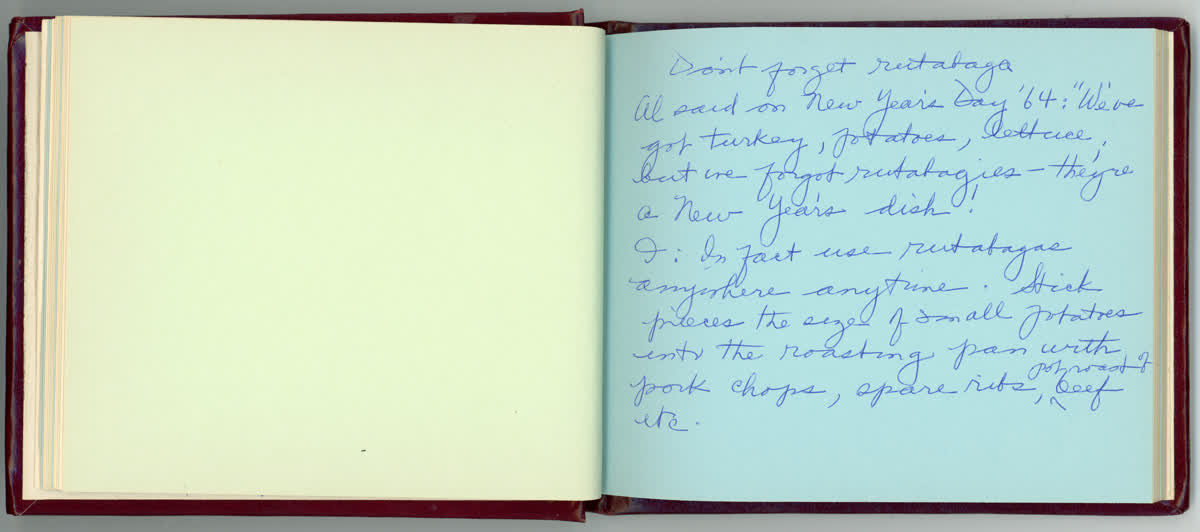 Don't forget rutabaga
Al said on New Year's Day '64: "We've
got turkey, potatoes, lettuce,
but we forgot rutabagies – they're
a New Year's dish!
I: In fact use rutabagas
anywhere anytime. Stick
pieces the size of small potatoes
into the roasting pan with
pork chops, spare ribs, pot roast of beef
etc.